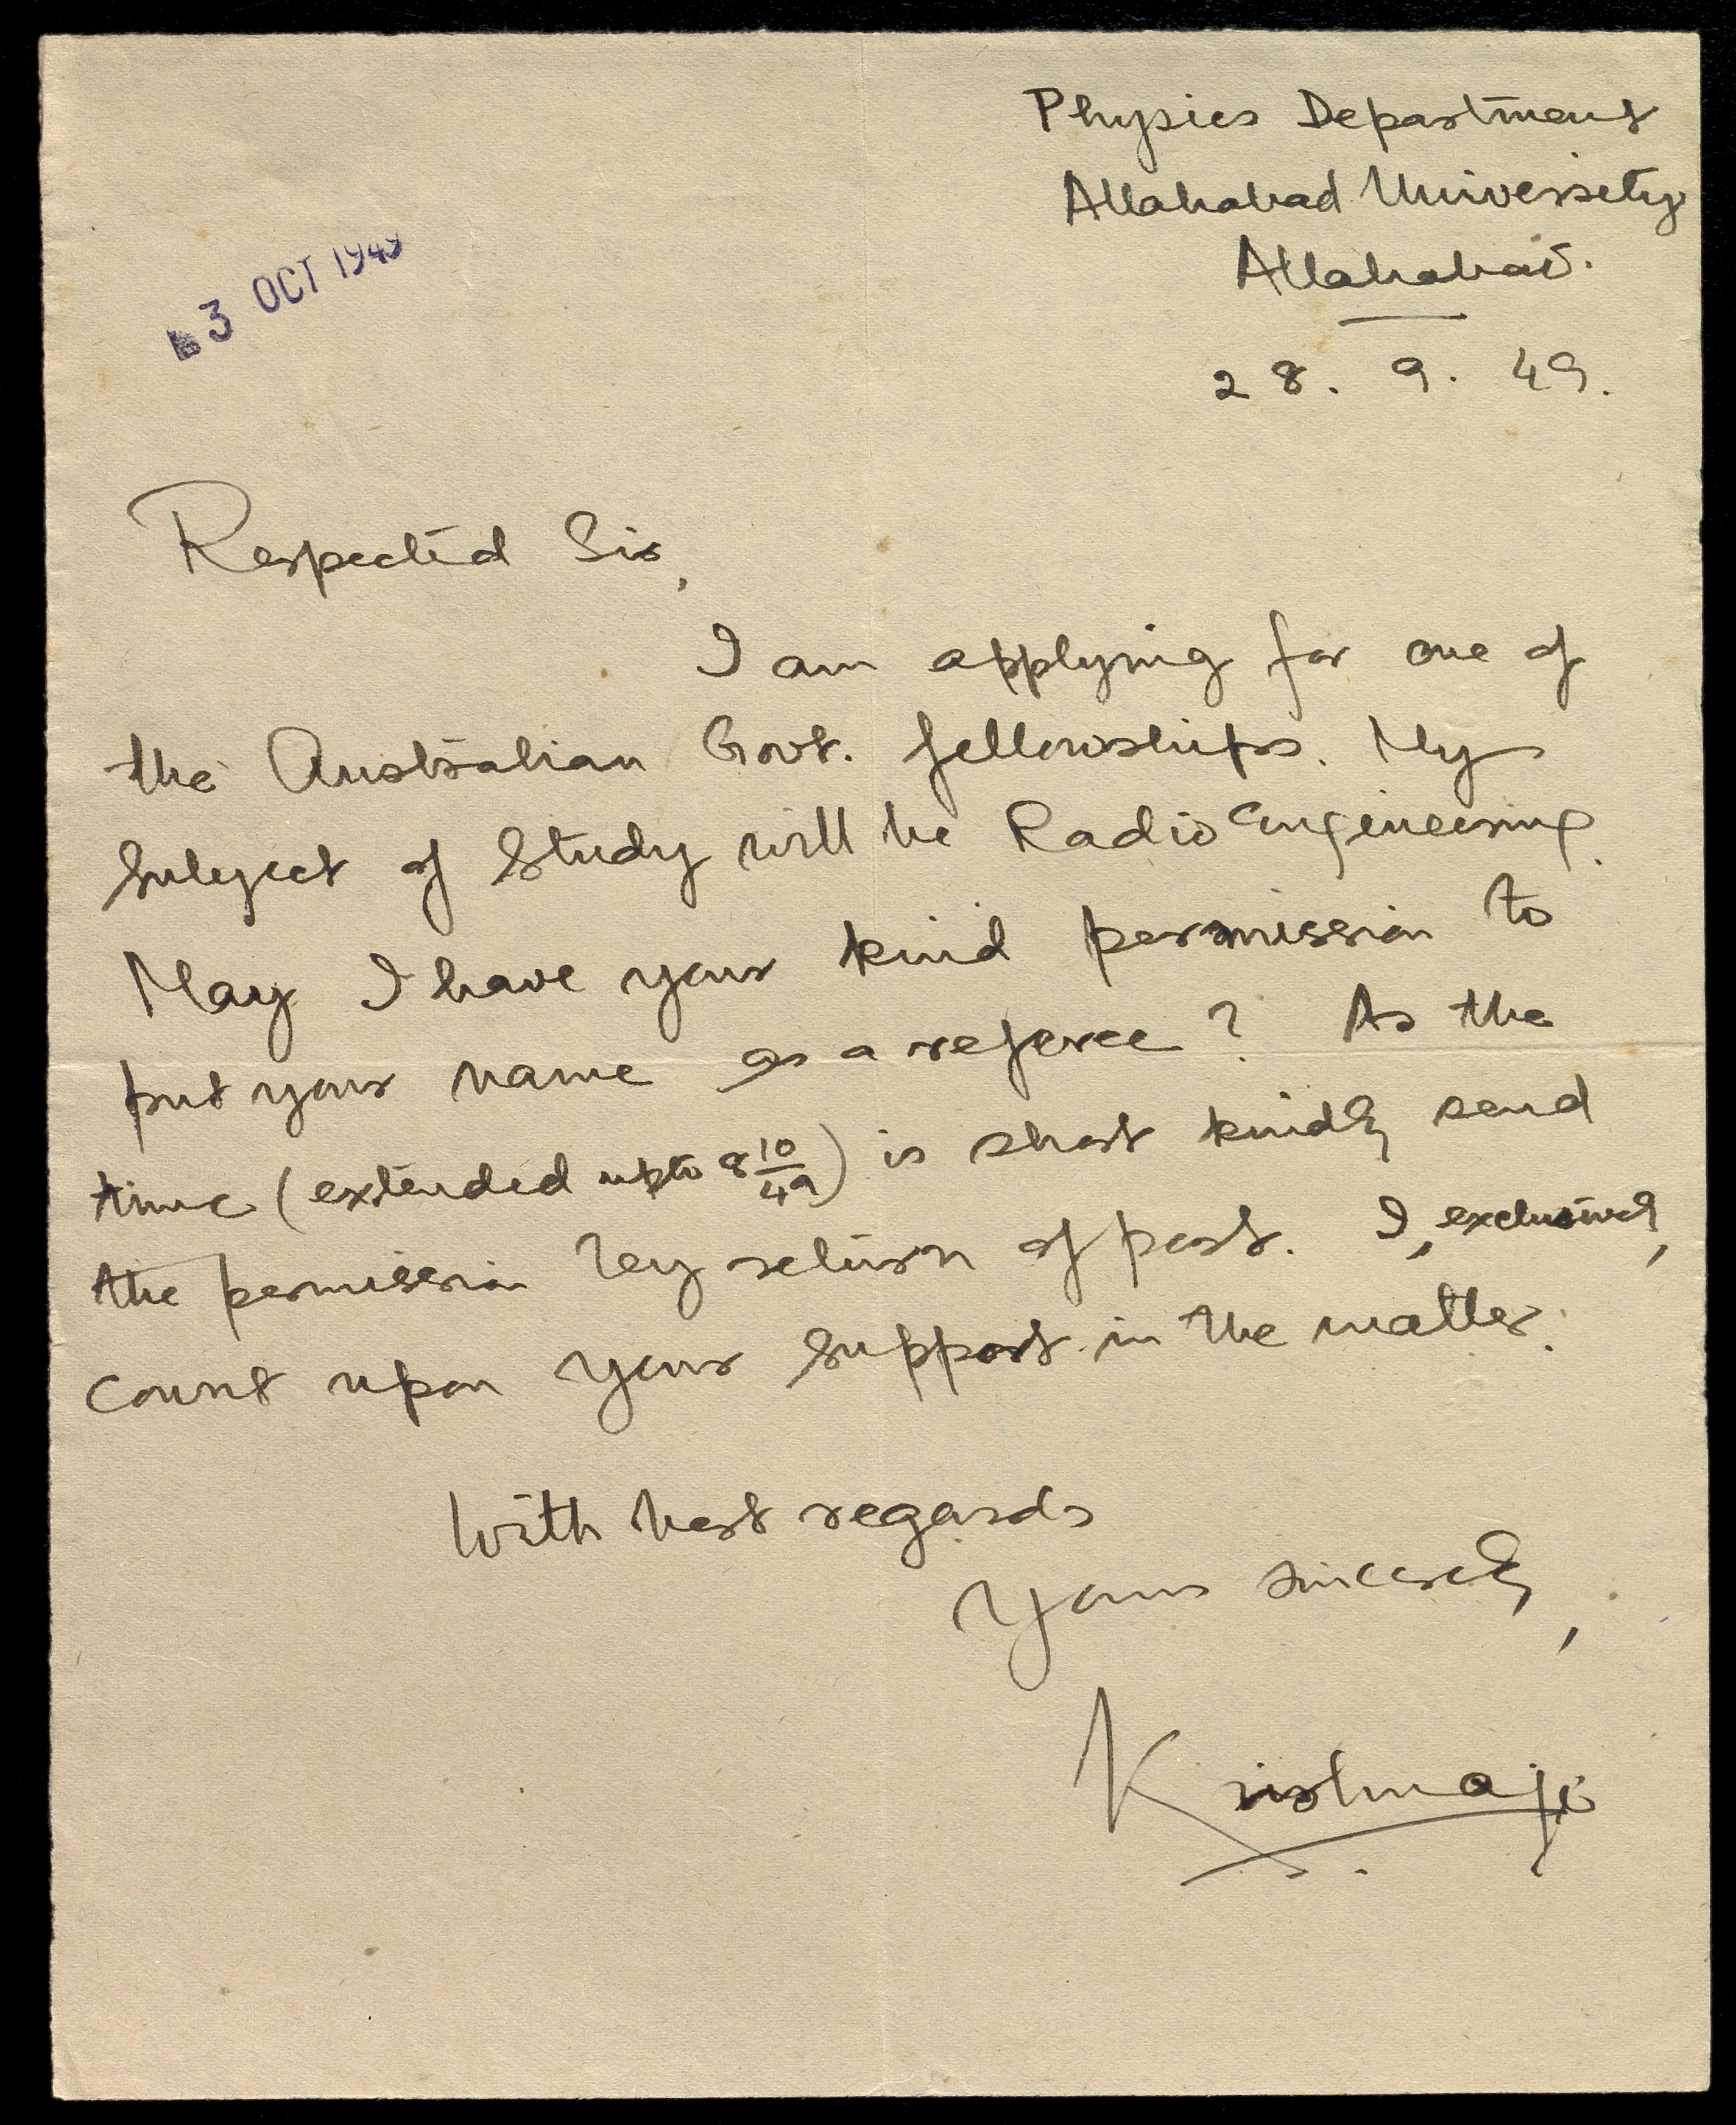 Physics Department
Allahabad University
Allahabad.
3 OCT 1949
28. 9. 49.
Respected Sir,
I am applying for one of
the Australian Govt. fellowships. My
Subject of Study will be Radio Engineering.
May I have your kind permission to
put your name as a referee? As the
time (extended upto 8 10/49) is short kindly send
the permission by return of post. I, exclusively,
count upon your support in the matter.
With best regards
Yours sincerely,
Krishnaji